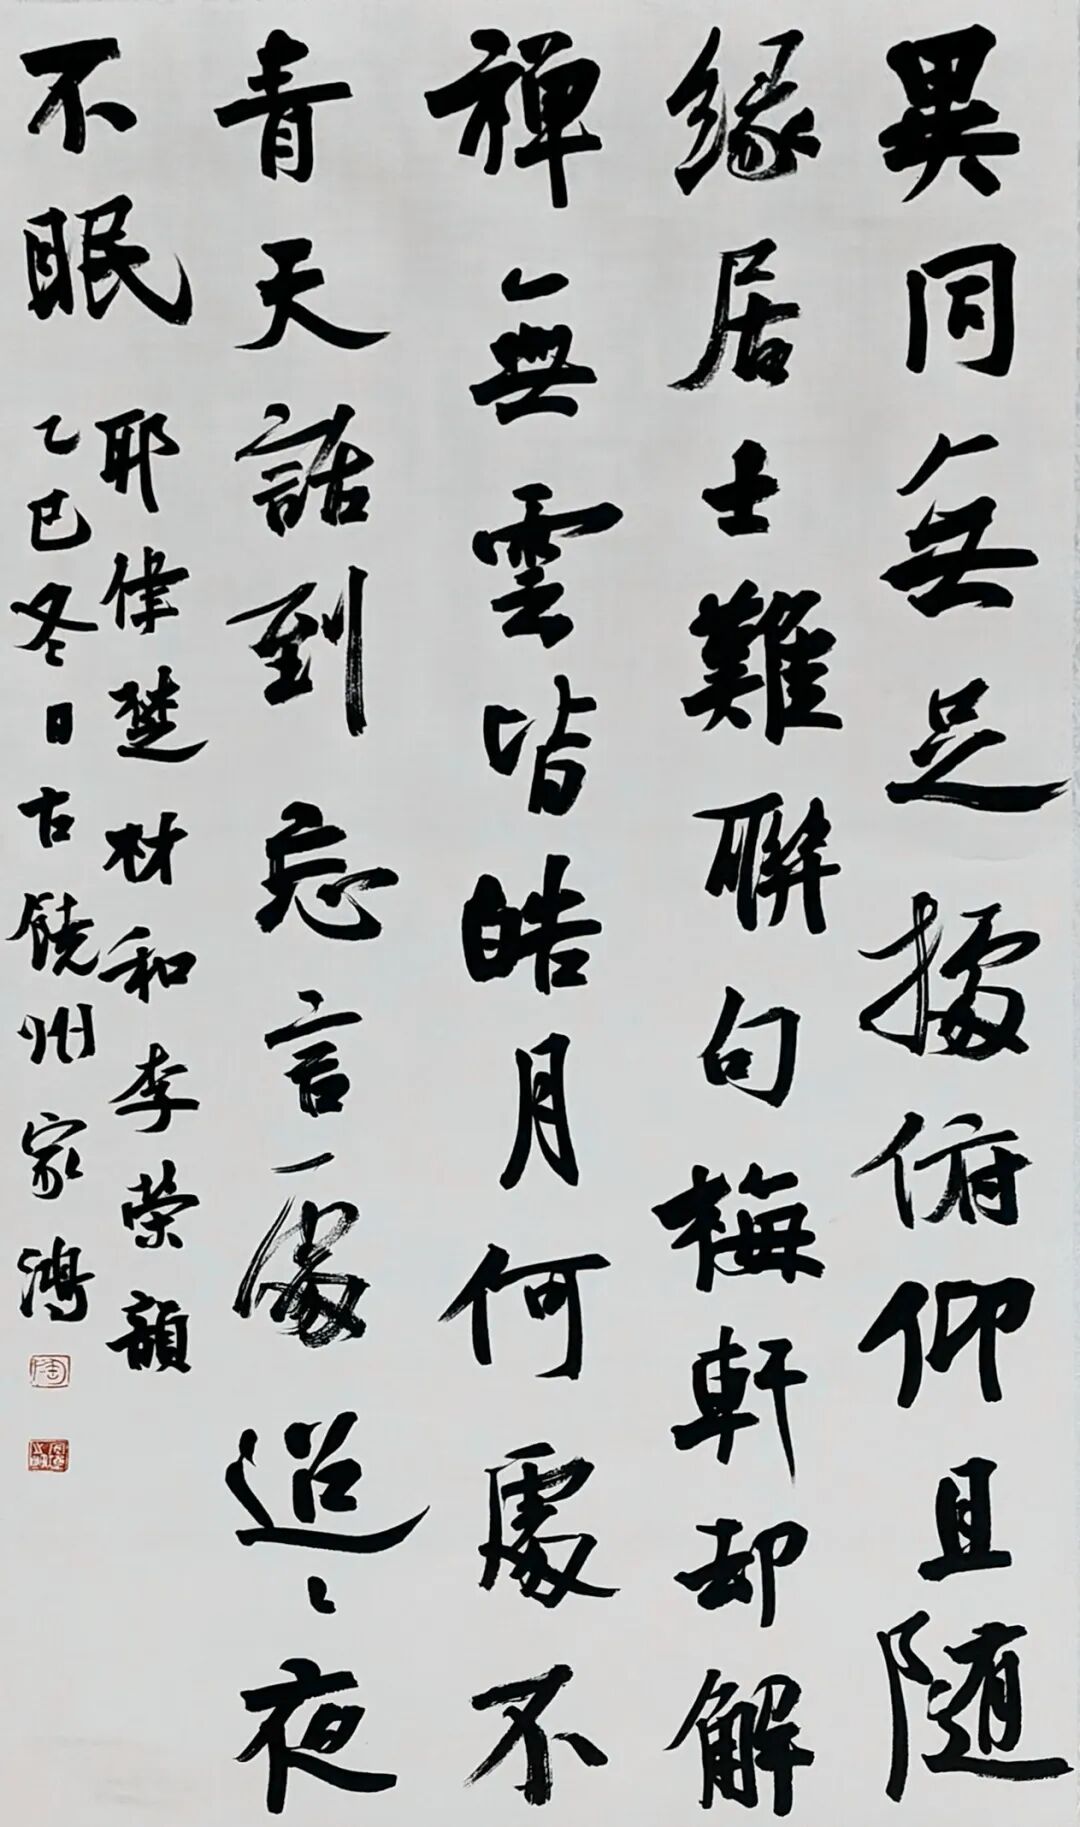 異同無足據俯仰且随
緣居士難聯句梅軒却解
禅無雲皆皓月何處不
青天話到忘言處迢〻夜
不眠
耶律楚材和李荣韻
乙巳冬日古饒州家鴻